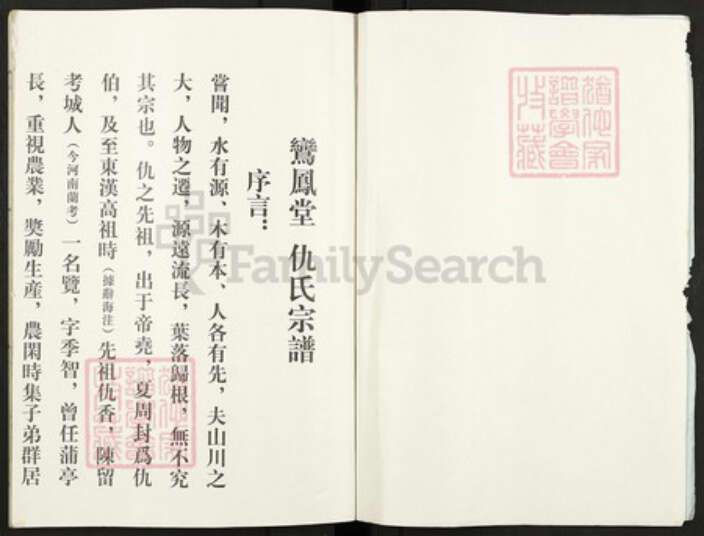 鸞鳳堂 仇氏宗譜
序言:
嘗聞，水有源、木有本、人各有先，夫山川之
大，人物之遷，源遠流長，葉落歸根，無不究
其宗也。仇之先祖，出于帝堯，夏周封爲仇
伯，及至東漢高祖時（據辭海注）先祖仇香，陳留
考城人（今河南蘭考）一名覽，字季智，曾任蒲亭
長，重視農業，獎勵生産，農閑時集子弟群居
FamilySearch